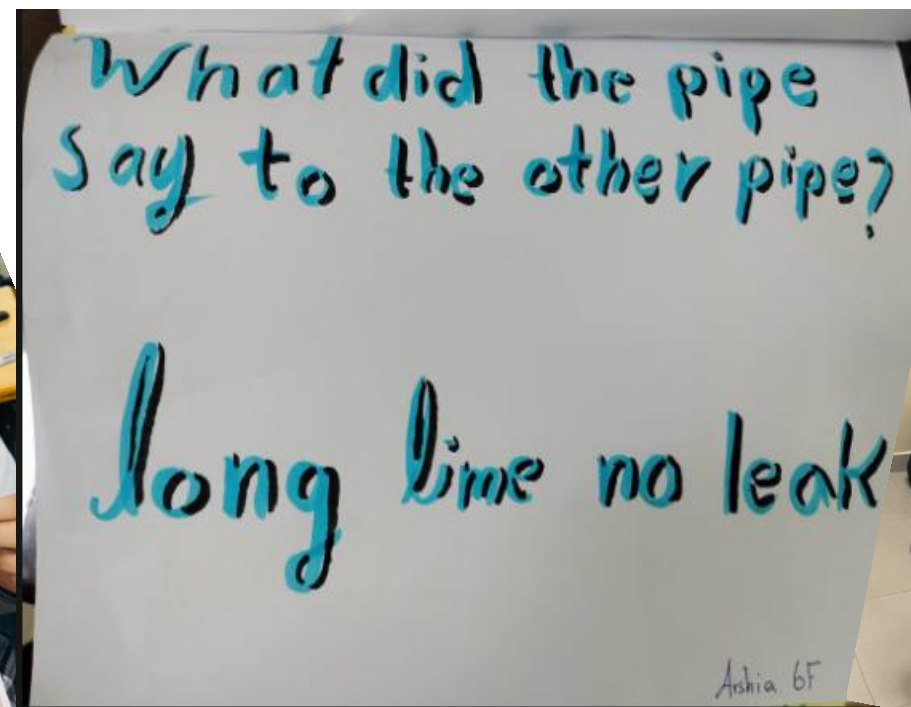 What did the pipe
say to the other pipe?
long lime no leak
Arshia 6F